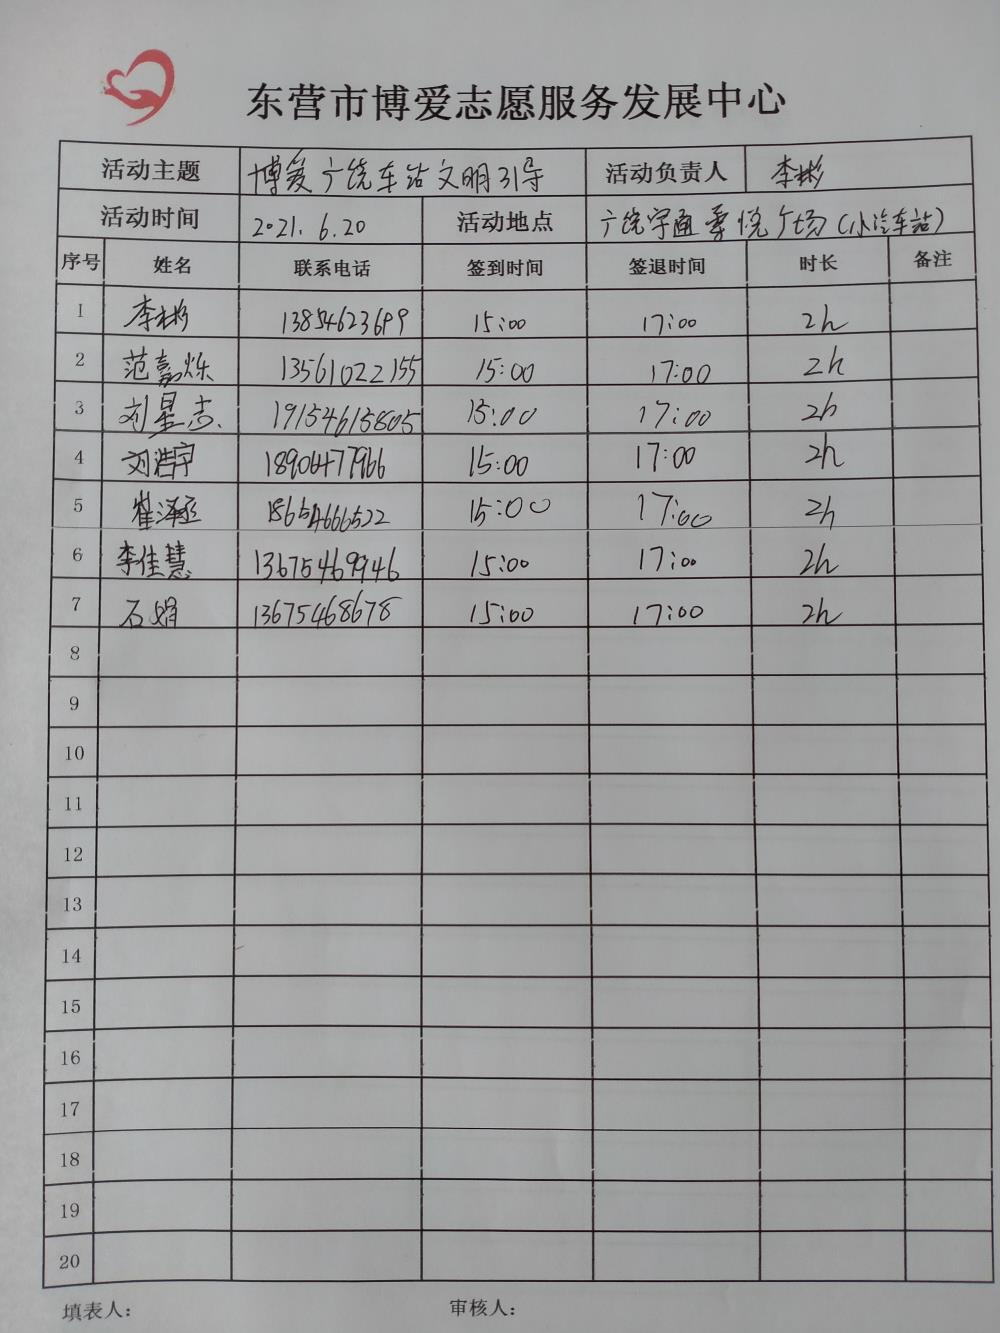 东营市博爱志愿服务发展中心
活动主题 博爱广饶车站文明引导 活动负责人 李彬
活动时间 2021.6.20 活动地点 广饶宇通尊悦广场(小汽车站)
序号 姓名 联系电话 签到时间 签退时间 时长 备注
1 李彬 13854623699 15:00 17:00 2h
2 范嘉烁 13561022155 15:00 17:00 2h
3 刘星志 19154615805 15:00 17:00 2h
4 刘浩宇 18904477966 15:00 17:00 2h
5 崔泽丞 18654666522 15:00 17:00 2h
6 李佳慧 13675469946 15:00 17:00 2h
7 石娟 13675468678 15:00 17:00 2h
8
9
10
11
12
13
14
15
16
17
18
19
20
填表人: 审核人: